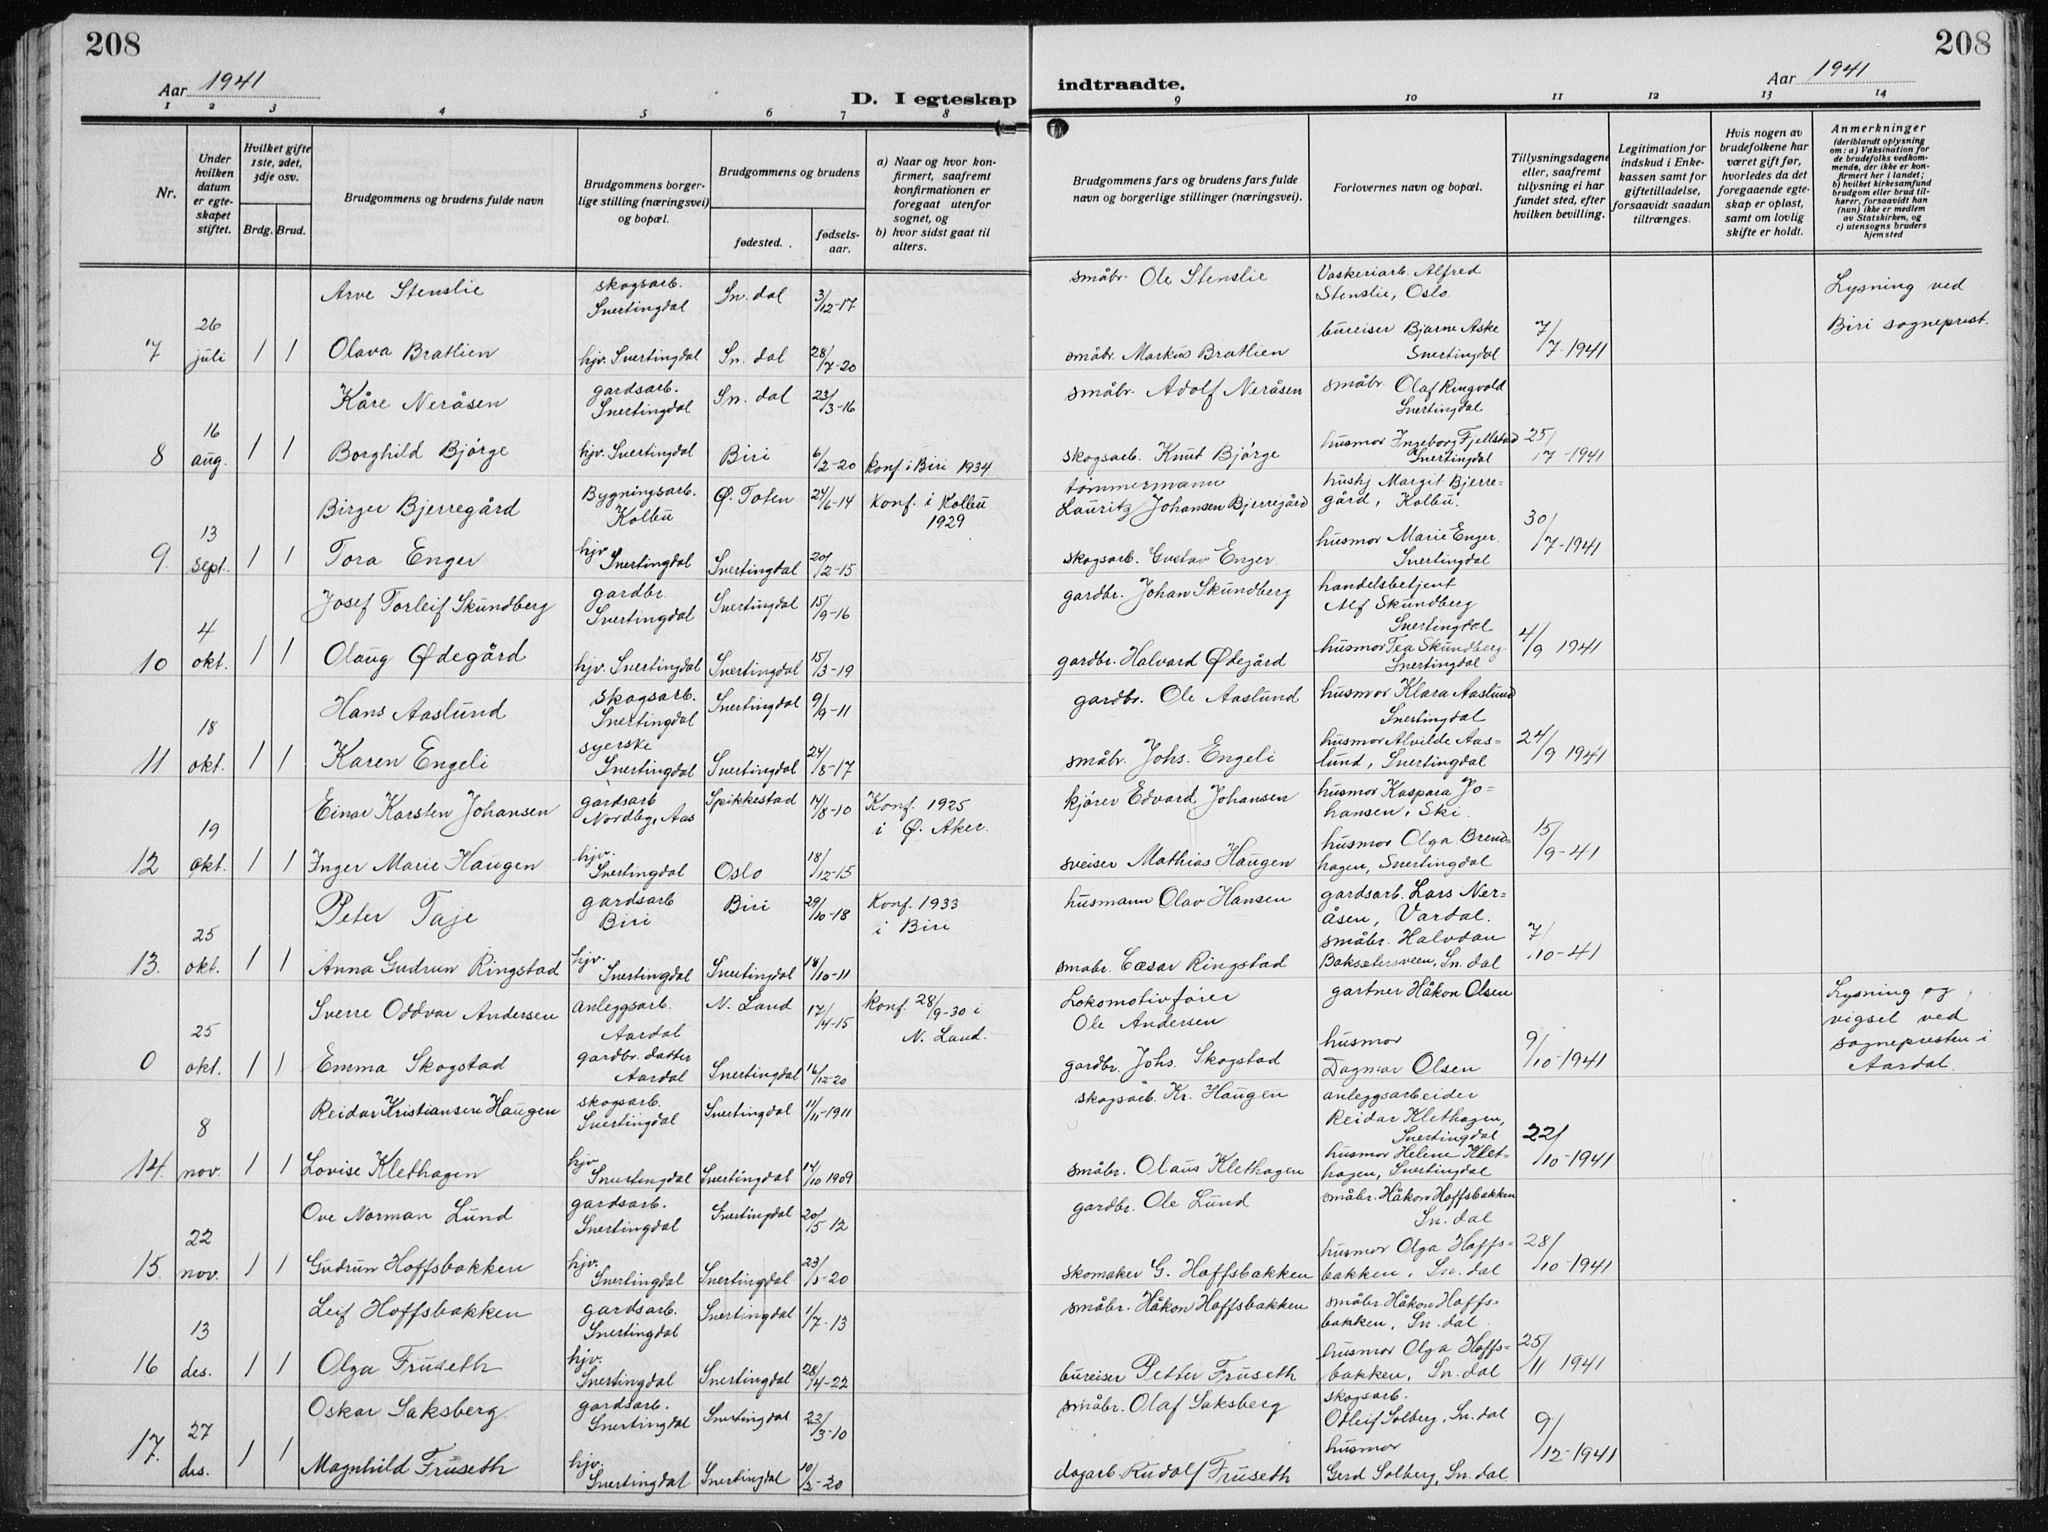 208
208
Aar 1941
D. I egteskap
indtraadte.
Aar 1941
1 2 3 4 5 6 7 8 9 10 11 12 13 14
Nr.
Under hvilken datum er egteskapet stiftet.
Hvilket gifte 1ste, 2det, 3dje osv.
Brdg. Brud.
Brudgommens og brudens fulde navn
Brudgommens borgerlige stilling (næringsvei) og bopæl.
Brudgommens og brudens
fødested.
fødselsaar.
a) Naar og hvor konfirmert, saafremt konfirmationen er foregaat utenfor sognet, og
b) hvor sidst gaat til alters.
Brudgommens fars og brudens fars fulde navn og borgerlige stillinger (næringsvei).
Forlovernes navn og bopæl.
Tillysningsdagene eller, saafremt tillysning ei har fundet sted, efter hvilken bevilling.
Legitimation for indskud i Enkekassen samt for giftetilladelse, forsaavidt saadan tiltrænges.
Hvis nogen av brudefolkene har været gift før, hvorledes da det foregaaende egteskap er opløst, samt om lovlig skifte er holdt.
Anmerkninger (deriblandt oplysning om: a) Vaksination for de brudefolks vedkommende, der ikke er konfirmert her i landet; b) hvilket kirkesamfund brudgom eller brud tilhører, forsaavidt han (hun) ikke er medlem av Statskirken, og c) utensogns bruders hjemsted
Arve Stenslie skogsarb. Snertingdal Sn. dal 3/12-17 småbr. Ole Stenslie Vaskeriarb. Alfred Stenslie, Oslo. Lysning ved Biri sogneprest.
7 26 juli 1 1 Olava Bratlien hjv. Snertingdal Sn. dal 28/7-20 småbr. Markus Bratlien bureiser Bjarne Aske Snertingdal 7/7-1941
Kåre Neråsen gardsarb. Snertingdal Sn. dal 23/3-16 småbr. Adolf Neråsen småbr. Olaf Ringvold Snertingdal
8 16 aug. 1 1 Borghild Bjørge hjv. Snertingdal Biri 6/2-20 konf. i Biri 1934 skogsarb. Knut Bjørge husmor Ingeborg Fjellstad Snertingdal 25/7-1941
Birger Bjerregård Bygningsarb. Kolbu Ø. Toten 24/6-14 Konf. i Kolbu 1929 tømmermann Lauritz Johansen Bjerregård hushj Margit Bjerregård, Kolbu.
9. 13 sept. 1 1 Tora Enger hjv Snertingdal Snertingdal 20/2-15 skogsarb. Gustav Enger husmor Marie Enger. Snertingdal 30/7-1941
Josef Torleif Skundberg gardbr. Snertingdal Snertingdal 15/9-16 gardbr. Johan Skundberg handelsbetjent Alf Skundberg Snertingdal
10 4 okt. 1 1 Olaug Ødegård hjv. Snertingdal Snertingdal 15/3-19 gardbr. Halvard Ødegård husmor Tea Skundberg Snertingdal 4/9 1941
Hans Aaslund skogsarb. Snertingdal Snertingdal 9/9-11 gardbr. Ole Aaslund husmor Klara Aaslund Snertingdal
11 18 okt. 1 1 Karen Engeli syerske Snertingdal Snertingdal småbr. Johs. Engeli husmor Alvilde Aaslund, Snertingdal 24/9 1941
Einar Karsten Johansen gardsarb Nordbg, Aas Spikkestad 14/8-10 Konf. 1925 i Ø. Aker. kjører Edvard Johansen husmor Kaspara Johansen, Ski.
12 19 okt. 1 1 Inger Marie Haugen hjv. Snertingdal Oslo 18/12-15 sveiser Mathias Haugen husmor Olga Brendhagen, Snertingdal 15/9-41
Peter Taje gardsarb Biri Biri 29/10-18 Konf. 1933 i Biri husmann Olav Hansen gardsarb. Lars Neråsen, Vardal.
13. 25 okt. 1 1 Anna Gudrun Ringstad hjv. Snertingdal Snertingdal 18/10-11 småbr. Cæsar Ringstad småbr. Halvdan Baksætersveen, Sn. dal 7/10-41
Sverre Oddvar Andersen anleggsarb. Aardal N. Land 17/4-15 Konf. 28/9-30 i N. Land. Lokomotivfører Ole Andersen gartner Håkon Olsen Lysning og vigsel ved sognepresten i Aardal.
0 25 okt. 1 1 Emma Skogstad gardbr. datter Aardal Snertingdal 16/12-20 gardbr. Johs. Skogstad husmor Dagmar Olsen 9/10-1941
Reidar Kristiansen Haugen skogsarb. Snertingdal Snertingdal 11/11-1911 skogsarb. Kr. Haugen anleggsarbeider Reidar Klethagen, Snertingdal
14. 8 nov. 1 1 Lovise Klethagen hjv Snertingdal Snertingdal 14/10 1909 småbr. Olaus Klethagen husmor Helene Klethagen, Snertingdal 22/10-1941
Ove Norman Lund gardsarb. Snertingdal Snertingdal 20/5 12 gardbr. Ole Lund småbr. Håkon Hoffsbakken Sn. dal
15. 22 nov. 1 1 Gudrun Hoffsbakken hjv. Snertingdal Snertingdal skomaker G. Hoffsbakken husmor Olga Hoffsbakken, Sn. dal 28/10-1941
Leif Hoffsbakken gardsarb. Snertingdal Snertingdal 1/7-13 småbr. Håkon Hoffsbakken småbr. Håkon Hoffsbakken, Sn. dal.
16 13 des. 1 1 Olga Fruseth hjv. Snertingdal Snertingdal 28/4-22 bureiser Petter Fruseth husmor Olga Hoffsbakken, Sn. dal 25/11 1941
Oskar Saksberg gardsarb. Snertingdal Snertingdal 23/3-10 småbr. Olaf Saksberg skogsarb. Odleif Solberg, Sn. dal
17. 27 des. 1 1 Magnhild Fruseth hjv. Snertingdal Snertingdal 10/2-20 dagarb. Rudolf Fruseth husmor Gerd Solberg, Sn. dal 9/12-1941